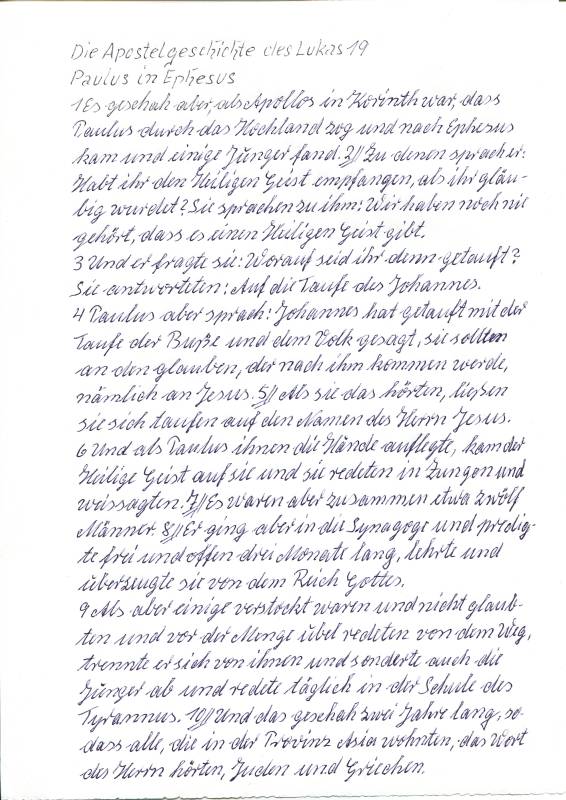 Die Apostelgeschichte des Lukas 19
Paulus in Ephesus
1 Es geschah aber, als Apollos in Korinth war, dass
Paulus durch das Hochland zog und nach Ephesus
kam und einige Jünger fand. 2// Zu denen sprach er:
Habt ihr den Heiligen Geist empfangen, als ihr gläu-
big wurdet? Sie sprachen zu ihm: Wir haben noch nie
gehört, dass es einen Heiligen Geist gibt.
3 Und er fragte sie: Worauf seid ihr denn getauft?
Sie antworteten: Auf die Taufe des Johannes.
4 Paulus aber sprach: Johannes hat getauft mit der
Taufe der Buße und dem Volk gesagt, sie sollten
an den glauben, der nach ihm kommen werde,
nämlich an Jesus. 5// Als sie das hörten, ließen
sie sich taufen auf den Namen des Herrn Jesus.
6 Und als Paulus ihnen die Hände auflegte, kam der
Heilige Geist auf sie und sie redeten in Zungen und
weissagten. 7// Es waren aber zusammen etwa zwölf
Männer. 8// Er ging aber in die Synagoge und predig-
te frei und offen drei Monate lang, lehrte und
überzeugte sie von dem Reich Gottes.
9 Als aber einige verstockt waren und nicht glaub-
ten und vor der Menge übel redeten von dem Weg,
trennte er sich von ihnen und sonderte auch die
Jünger ab und redete täglich in der Schule des
Tyrannus. 10// Und das geschah zwei Jahre lang, so-
dass alle, die in der Provinz Asia wohnten, das Wort
des Herrn hörten, Juden und Griechen.